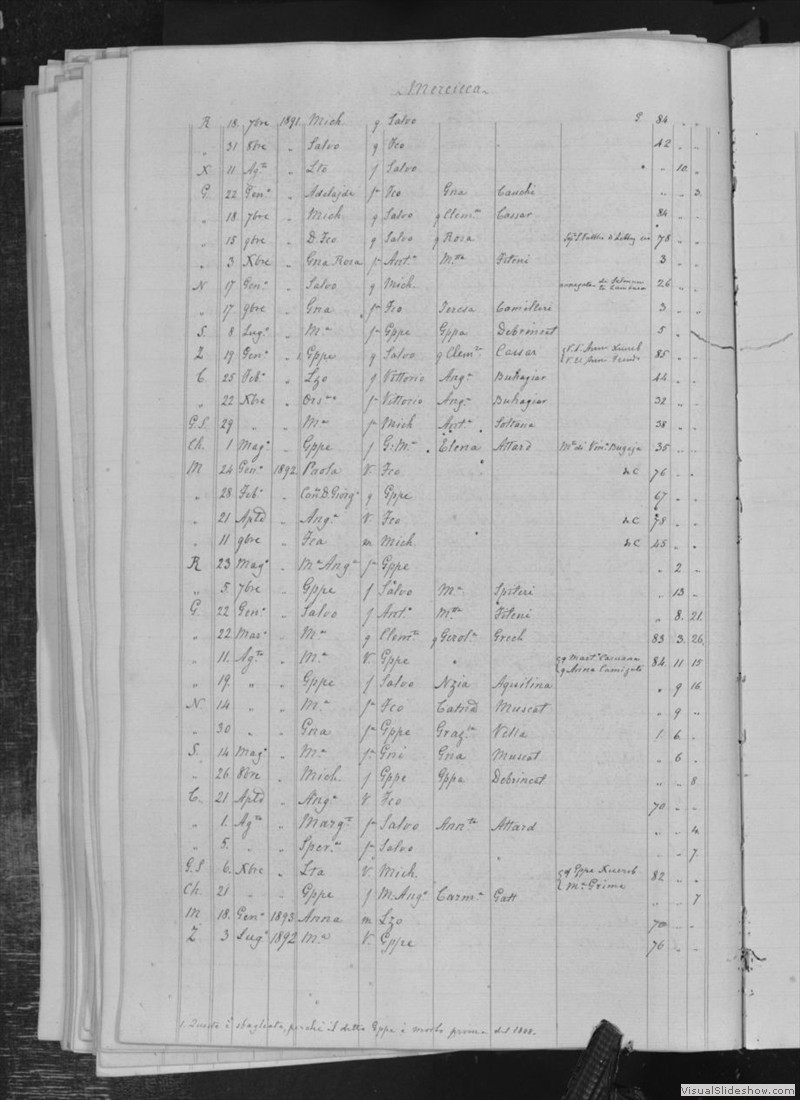 Mercieca
R 18 7bre 1891 Mich. q Salvo P. 84 " "
" 31 8bre " Salvo q Fco 42 " "
X 11 Agto " Lto f Salvo " 10 "
G 22 Geno " Adelajde fa Fco Gna Cauchi " " 3
" 18 7bre " Mich. q Salvo q Clemza Cassar 84 "
" 15 9bre " D. Fco q Salvo q Rosa 78 "
" 3 Xbre " Gna Rosa fa Anto Mtta Fiteni 3 "
N 17 Geno " Salvo q Mich. 26 "
" 17 9bre " Gna fa Fco Teresa Camilleri 3 "
S 8 Lugo " Ma fa Gppe Gppa Debrincat 5 "
Z 19 Geno " 1. Gppe q Salvo q Clemza Cassar 85 "
C. 25 Febo " Lzo f Vittorio Anga Buhagiar 44 "
" 22 Xbre " fa Vittorio Anga Buhagiar 32 "
G.S. 29 " " Ma fa Mich Anta Soltana 38 "
Ch. 1 Mago " Gppe f G. Ma Elena Attard Mto di Vinca Bugeja 35 "
M 24 Geno 1892 Paola V. Fco NC 76 "
" 28 Febo " Can. D. Giorgo q Gppe 67 "
" 21 Aple " Anga V. Fco NC 78 "
" 11 9bre " Fca m Mich. NC 45 "
R 23 Mago " Ma Anga fa Gppe " 2 "
" 5 7bre " Gppe f Salvo Ma Spiteri " 13 "
G. 22 Geno " Salvo f Anto Mtta Fiteni " 8. 21.
" 22 Marzo " Ma q Clemte q Gerola Grech 83 3. 26.
" 11. Agto " Ma V. Gppe 84 11 15
" 19. " " Gppe f Salvo Nzia Aquilina " 9 16
N. 14 " " Ma fa Fco Catna Muscat " 9 "
" 30 " " Gna fa Gppe Grazia Vella 1. 6 "
S. 14 Mago " Ma fa Gni Gna Muscat " 6 "
" 26 8bre " Mich. f Gppe Gppa Debrincat " " 8
C. 21 Aple " Anga V. Fco 70 " "
" 1. Agto " Margta fa Salvo Annta Attard " " 4.
" 5. " " Spera fa Salvo " " 7.
G.S 6. Xbre " Lta V. Mich. q Gppe Xuereb q Ma Grima 82 " "
Ch. 21 " " Gppe f M. Ango Carma Gatt " " 7
M 18. Geno 1893 Anna m Lzo 70 "
Z 3 Lugo 1892 Ma V. Gppe 76 "
1. Questo è sbagliato, perchè il detto Gppe è morto prima del 1800.
VisualSlideshow.com